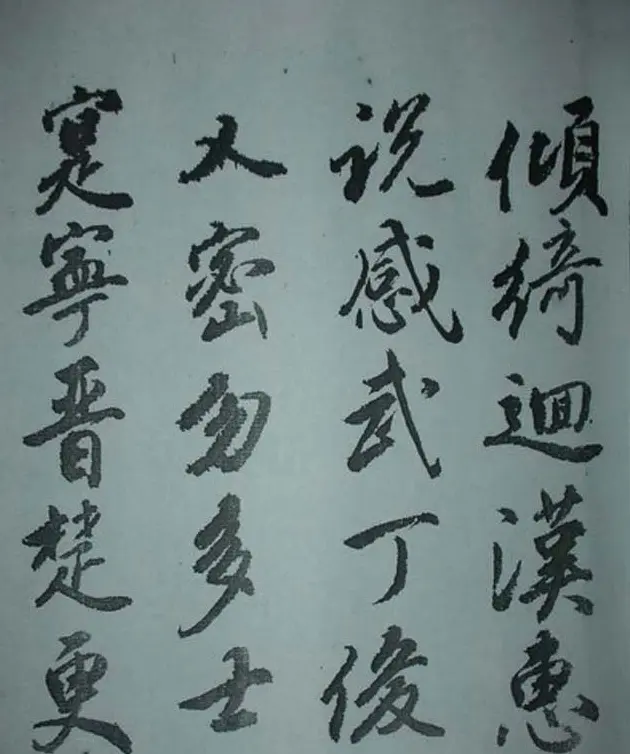 傾綺迴漢惠
说感武丁俊
乂密勿多士
寔寧晋楚更